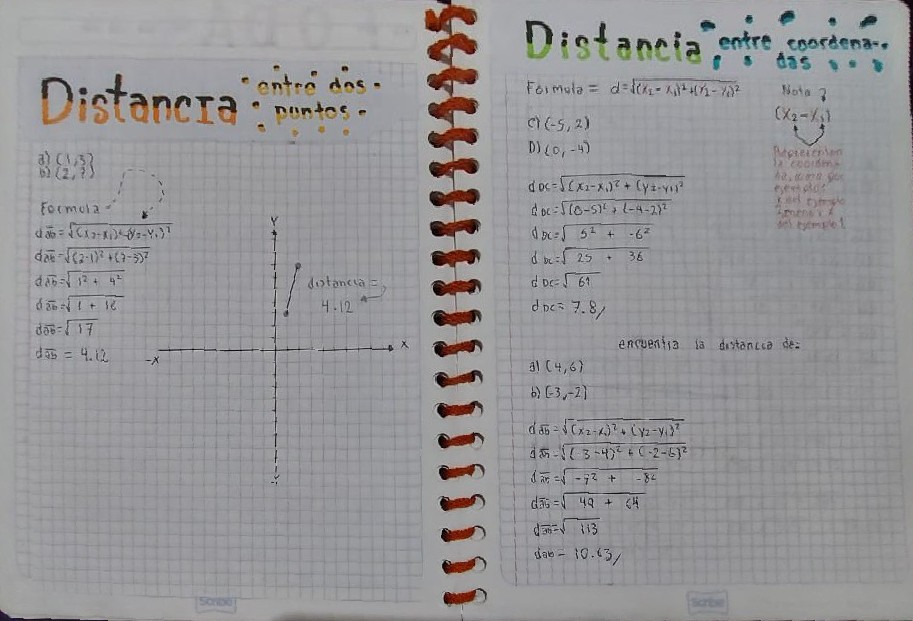 Distancia entre dos
puntos
a) (1,3)
b) (2,7)
Formula
dab=√(x₂-x₁)²+(y₂-y₁)²
dab=√(2-1)²+(7-3)²
dab=√1² + 4²
dab=√1 + 16
dab=√17
dab = 4.12
Y
distancia =
4.12
-X
X
-Y
Scribe
Distancia entre coordena-
das
Formula = d=√(x₂-x₁)²+(y₂-y₁)²
Nota
(x₂-x₁)
Representan
la coordena-
C) (-5,2)
D) (0,-4)
dDC=√(x₂-x₁)² + (y₂-y₁)²
dDC=√(0-5)² + (-4-2)²
dDC=√5² + -6²
dDC=√25 + 36
dDC=√61
dDC= 7.8
encuentra la distancia de:
a) (4,6)
b) (-3,-2)
dab=√(x₂-x₁)² + (y₂-y₁)²
dab=√(-3-4)² + (-2-6)²
dab=√-7² + -8²
dab=√49 + 64
dab=√113
dab= 10.63
Scribe